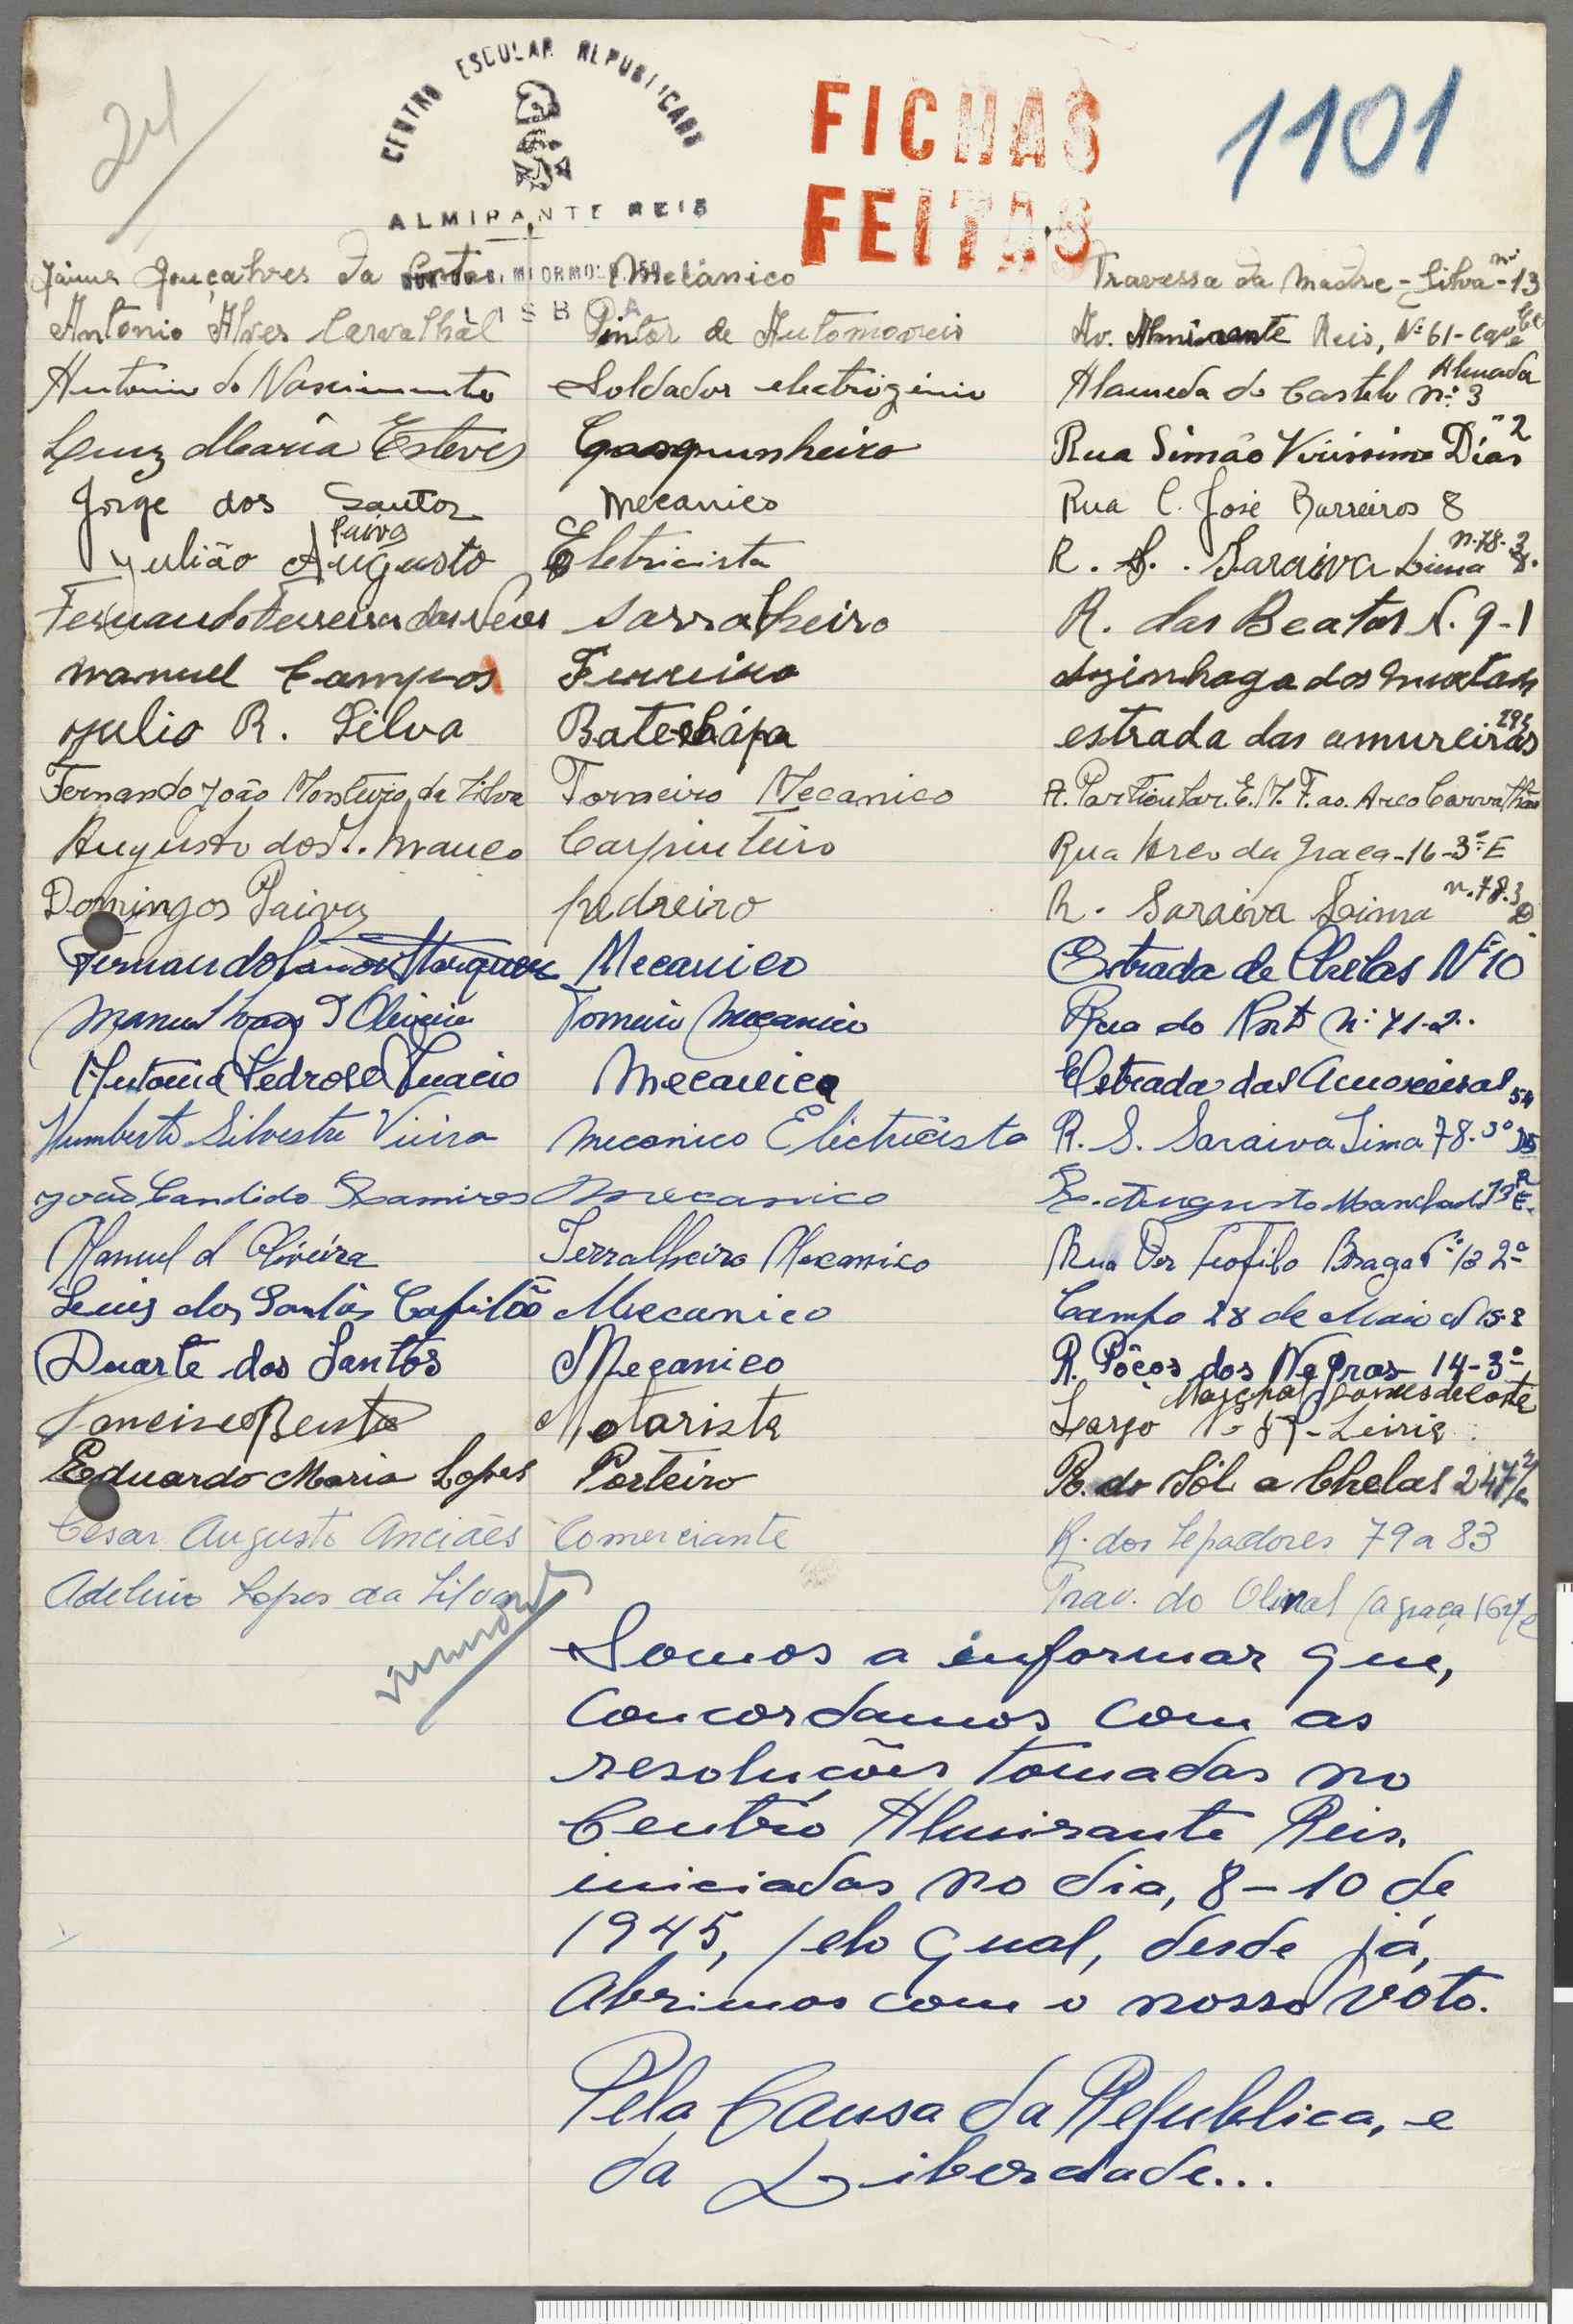 24
CENTRO ESCOLAR REPUBLICANO
ALMIRANTE REIS
LISBOA
FICHAS
FEITAS
1101
Jaime Gonçalves da Costa Mecanico Travessa da Madre-Silva-nº 13
Antonio Alves Carvalhal Pintor de Automoveis Av. Almirante Reis, Nº 61-
Antonio do Nascimento Soldador electrogénio Alameda do Castelo nº 3 Almada
Luiz Maria Esteves Rua Simão Virissimo Dias nº 2
Jorge dos Santos Mecanico Rua C. José Barreiros 8
Julião Augusto Paiva Eletricista R. S. Saraiva Lima n. 78-3
Fernando Ferreira das Neves Sarralheiro R. das Beatas N. 9-1
Manuel Campos Ferreiro
Julio R. Silva Bate-chápa estrada das amureiras
Fernando João Monteiro da Silva Torneiro Mecanico A. Particular. E. M. F. ao. Arco Carvalhão
Augusto dos S. Carpinteiro Rua Arco da Graça-16-3º E
Domingos Paiva pedreiro R. Saraiva Lima n. 78.3 D.
Fernando Marques Mecanico Estrada de Chelas Nº 10
Manuel d'Oliveira Torneiro Mecanico Rua do
Antonio Pedroso Inacio Mecanico Estrada das Amoreiras 54
Humberto Silvestre Vieira Mecanico Electricista R. S. Saraiva Lima 78.3º
João Candido Ramires Mecanico R. Augusto Machado 13 R E.
Manuel d'Oliveira Serralheiro Mecanico Rua Dor Teofilo Braga 2º
Luis dos Santos Capitão Mecanico Campo 28 de Maio
Duarte dos Santos Mecanico R. Pôços dos Negros 14-3º
Francisco Bento Motorista Largo Marechal Gomes da Costa Leiria
Eduardo Maria Lopes Porteiro R. do Sól a Chelas
Cesar Augusto Anciães Comerciante R. dos Sapadores 79 a 83
Adelino Lopes da Silva Trav. do Olival (a graça)
Somos a informar que,
concordamos com as
resoluções tomadas no
Centro Almirante Reis,
iniciadas no dia, 8-10 de
1945, pelo qual, desde já,
abrimos com o nosso voto.
Pela Causa da Republica, e
da Liberdade...